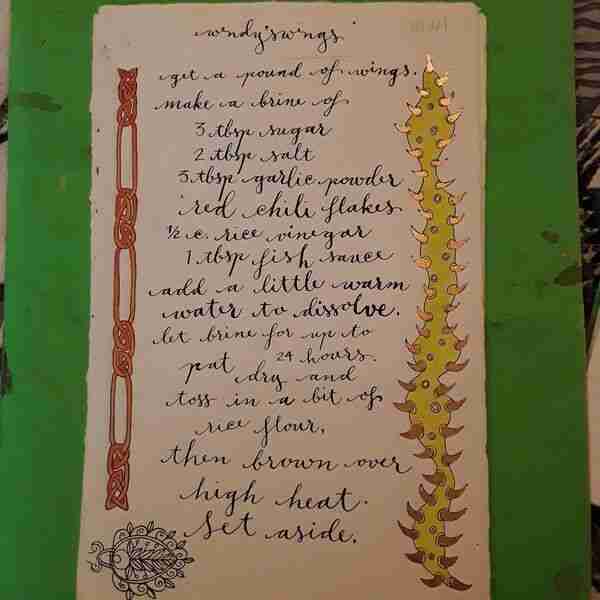 windy's wings
get a pound of wings.
make a brine of
3 tbsp sugar
2 tbsp salt
3 tbsp garlic powder
red chili flakes
½ c. rice vinegar
1 tbsp fish sauce
add a little warm
water to dissolve.
let brine for up to
24 hours.
pat dry and
toss in a bit of
rice flour,
then brown over
high heat.
Set aside.